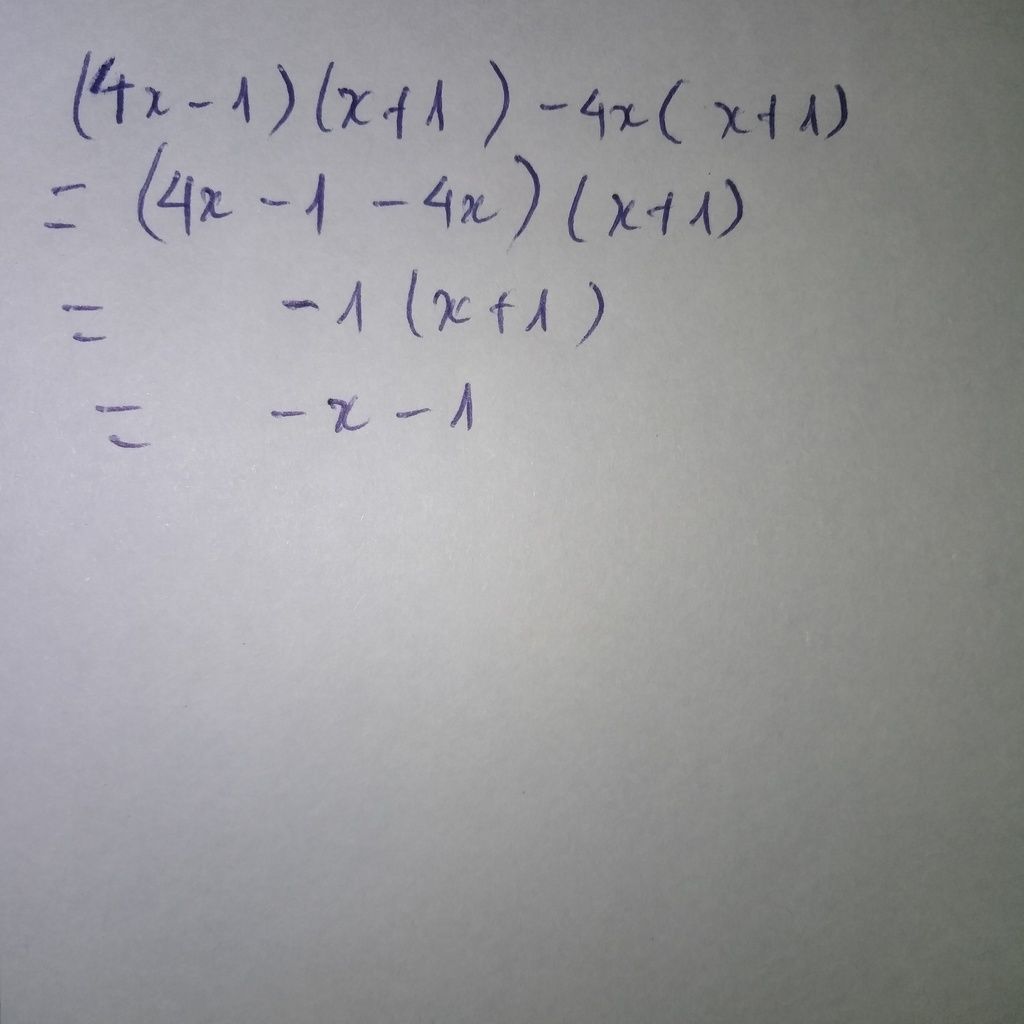 (4x-1)(x+1)-4x(x+1)
= (4x-1-4x)(x+1)
= -1(x+1)
= -x-1